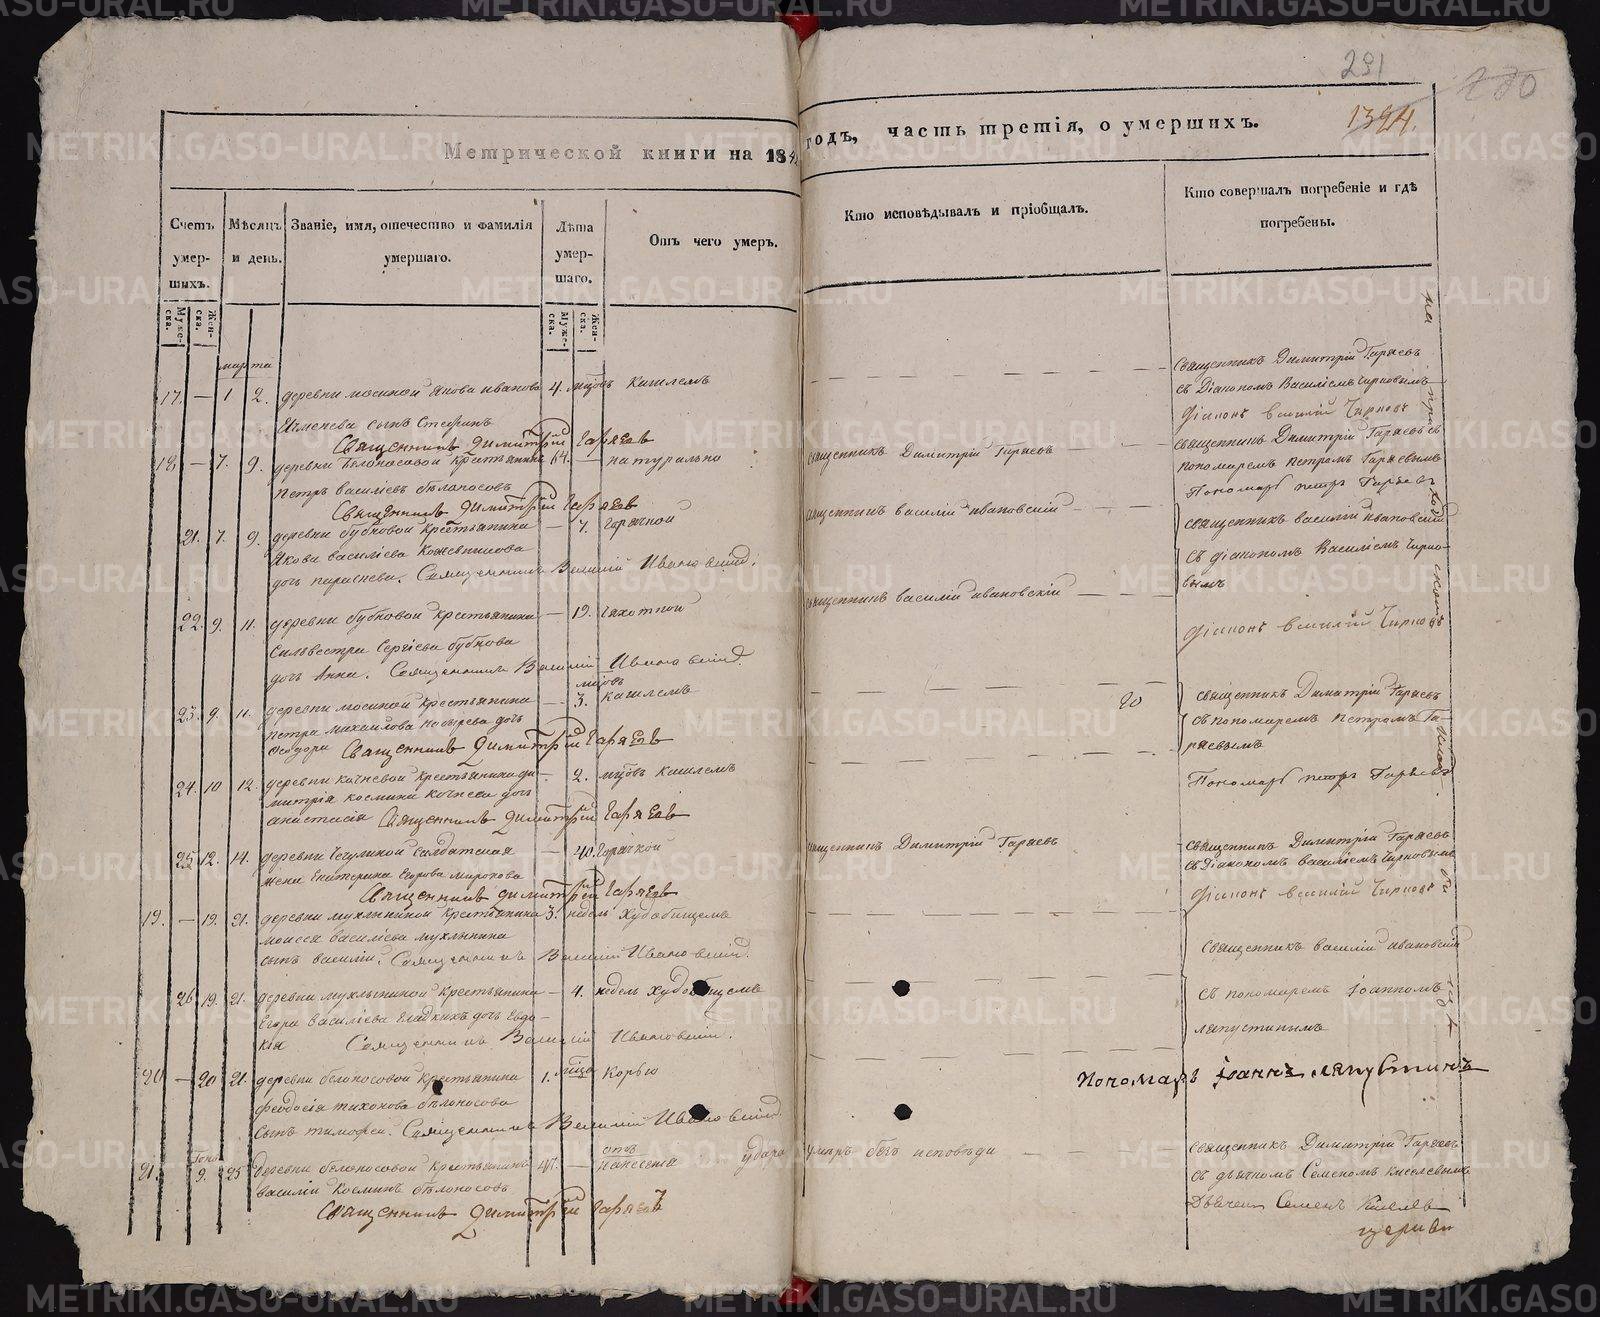 291
280
1394.
Метрической книги на 184
годъ, часть третія, о умершихъ.
Счетъ умер-шихъ.
Мѣсяцъ и день.
Званіе, имя, отечество и фамилія умершаго.
Лѣта умер-шаго.
Отъ чего умеръ.
Кто исповѣдывалъ и пріобщалъ.
Кто совершалъ погребеніе и гдѣ погребены.
Муже-ска.
Жен-ска.
Муже-ска.
Жен-ска.
марта
17. — 1 2. деревни мосиной Якова иванова 4. мцовъ Кашлемъ
сынъ Стефанъ
Священникъ Димитрій Гаряевъ
Священникъ Димитрій Гаряевъ
съ Діакономъ Василіемъ Чирковымъ
Діаконъ Василій Чирковъ
18. — 7. 9. деревни Бѣлоносовой крестьянинъ 64. — натурально
Петръ василіевъ бѣлоносовъ
Священникъ Димитрій Гаряевъ
священникъ Димитрій Гаряевъ
священникъ Димитрій Гаряевъ съ
пономаремъ петромъ Гаряевымъ
Пономарь петръ Гаряевъ
21. 7. 9. деревни бубновой крестьянина — 7. Горячкой
Якова василіева Кожевникова
дочь параскева. Священникъ Василій Ивановскій.
священникъ василій ивановскій
священникъ василій ивановскій
съ діакономъ Василіемъ Чирко-
вымъ
22. 9. 11. деревни бубновой крестьянина — 19. Чахоткой
Сильвестра Сергіева бубнова
дочь Анна. Священникъ Василій Ивановскій.
священникъ василій ивановскій
діаконъ Василій Чирковъ
23. 9. 11. деревни мосиной крестьянина — 3. мцовъ кашлемъ
петра михаилова дочь
Ѳеодора Священникъ Димитрій Гаряевъ
20
священникъ Димитрій Гаряевъ
съ пономаремъ петромъ Га-
ряевымъ
24. 10 12. деревни кочневой крестьянина ди- — 2. мцовъ кашлемъ
митрія космина кочнева дочь
анастасія Священникъ Димитрій Гаряевъ
Пономарь петръ Гаряевъ
25 12. 14. деревни Чечулиной солдатская — 40. Горячкой
жена Екатерина Егорова миронова
Священникъ Димитрій Гаряевъ
священникъ Димитрій Гаряевъ
священникъ Димитрій Гаряевъ
съ Діакономъ василіемъ Чирковымъ
Діаконъ Василій Чирковъ
19. — 19. 21. деревни мухлыниной крестьянина 3. недель Худобищемъ
моисея василіева мухлынина
сынъ василій. Священникъ Василій Ивановскій.
священникъ василій ивановскій
26 19. 21. деревни мухлыниной крестьянина — 4. недель Худобищемъ
Егора василіева Гладкихъ дочь Евдо-
кія Священникъ Василій Ивановскій.
съ пономаремъ Іоанномъ
лапустинымъ
20 — 20 21. деревни белоносовой крестьянина 1. мцъа Корью
феодосія тихонова бѣлоносова
сынъ тимофей. Священникъ Василій Ивановскій
Пономарь Іоаннъ лапустинъ
21. 9. 25 деревни белоносовой крестьянинъ 47. — отъ нанесенія удара
василій Косминъ бѣлоносовъ
Священникъ Димитрій Гаряевъ
умеръ безъ исповѣди
священникъ Димитрій Гаряевъ
съ дьячкомъ Семеномъ киселевымъ
Дьячекъ Семенъ Киселевъ
на при ход скомъ
церкви
METRIKI.GASO-URAL.RU